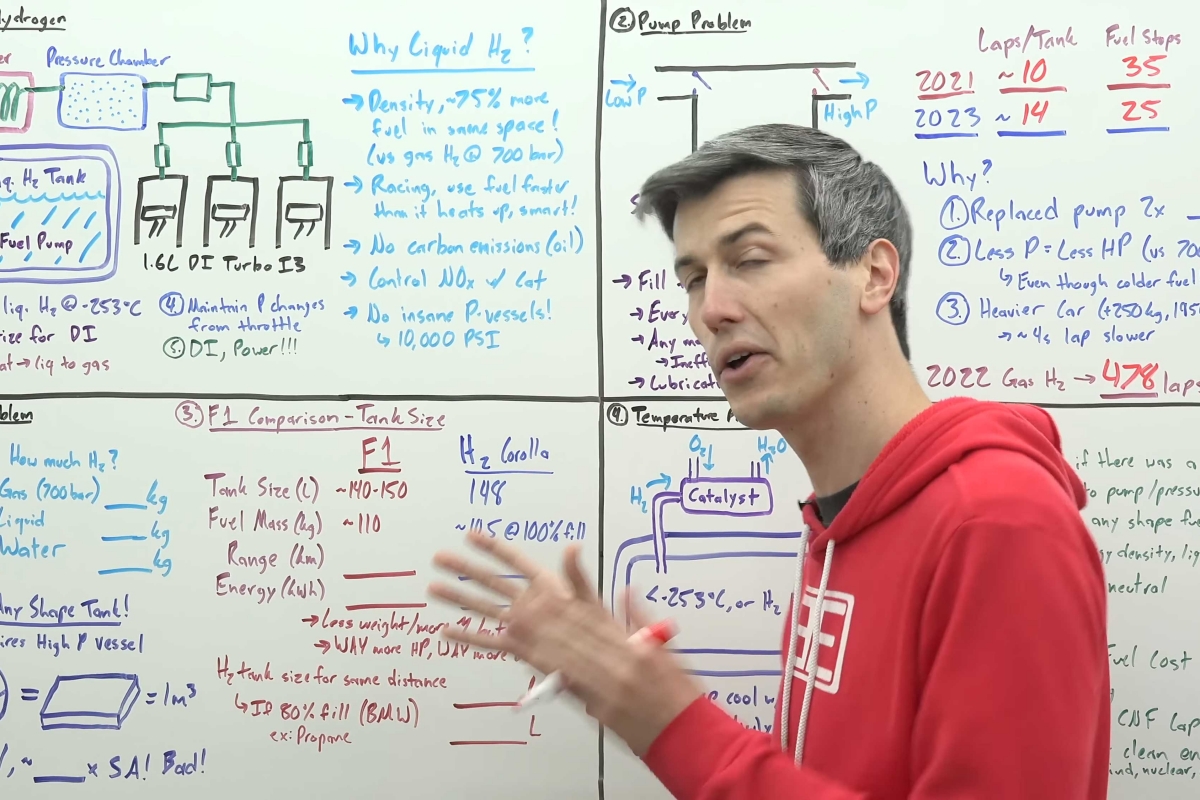 Hydrogen
Pressure Chamber
liq. H₂ Tank
Fuel Pump
1.6L DI Turbo I3
liq. H₂ @ -253°C
rize for DI
at → liq to gas
④ Maintain P changes
from throttle
⑤ DI, Power!!!
Why Liquid H₂?
→ Density, ~75% more
fuel in same space!
(vs gas H₂ @ 700 bar)
→ Racing, use fuel faster
than it heats up, smart!
→ No carbon emissions (oil)
→ Control NOx w/ Cat
→ No insane P-vessels!
↳ 10,000 PSI
② Pump Problem
Low P
High P
→ Fill
→ Every
→ Any
→ Ineff
→ Lubricat
Laps/Tank Fuel Stops
2021 ~10 35
2023 ~14 25
Why?
① Replaced pump 2x
② Less P = Less HP (vs 700
↳ Even though colder fuel
③ Heavier Car (+250kg, 195
→ ~4s lap slower
2022 Gas H₂ → 478 laps
blem
How much H₂?
Gas (700 bar) ___ kg
Liquid ___ kg
Water ___ kg
Any Shape Tank!
ires High P vessel
= = 1m³
~ ___ x SA! Bad!
③. F1 Comparison - Tank Size
F1 H₂ Corolla
Tank Size (L) ~140-150 148
Fuel Mass (kg) ~110 ~10.5 @ 100% fill
Range (km)
Energy (kWh)
→ Less weight/more
→ WAY more HP, WAY more
H₂ tank size for same distance
↳ If 80% fill (BMW) L
ex: Propane
④. Temperature
O₂ H₂O
H₂ → Catalyst
<-253°C, or H₂
cool
if there was a
to pump/pressu
any shape f
gy density, liq
neutral
Fuel Cost
CNF Lap
clean en
ind, nuclear,